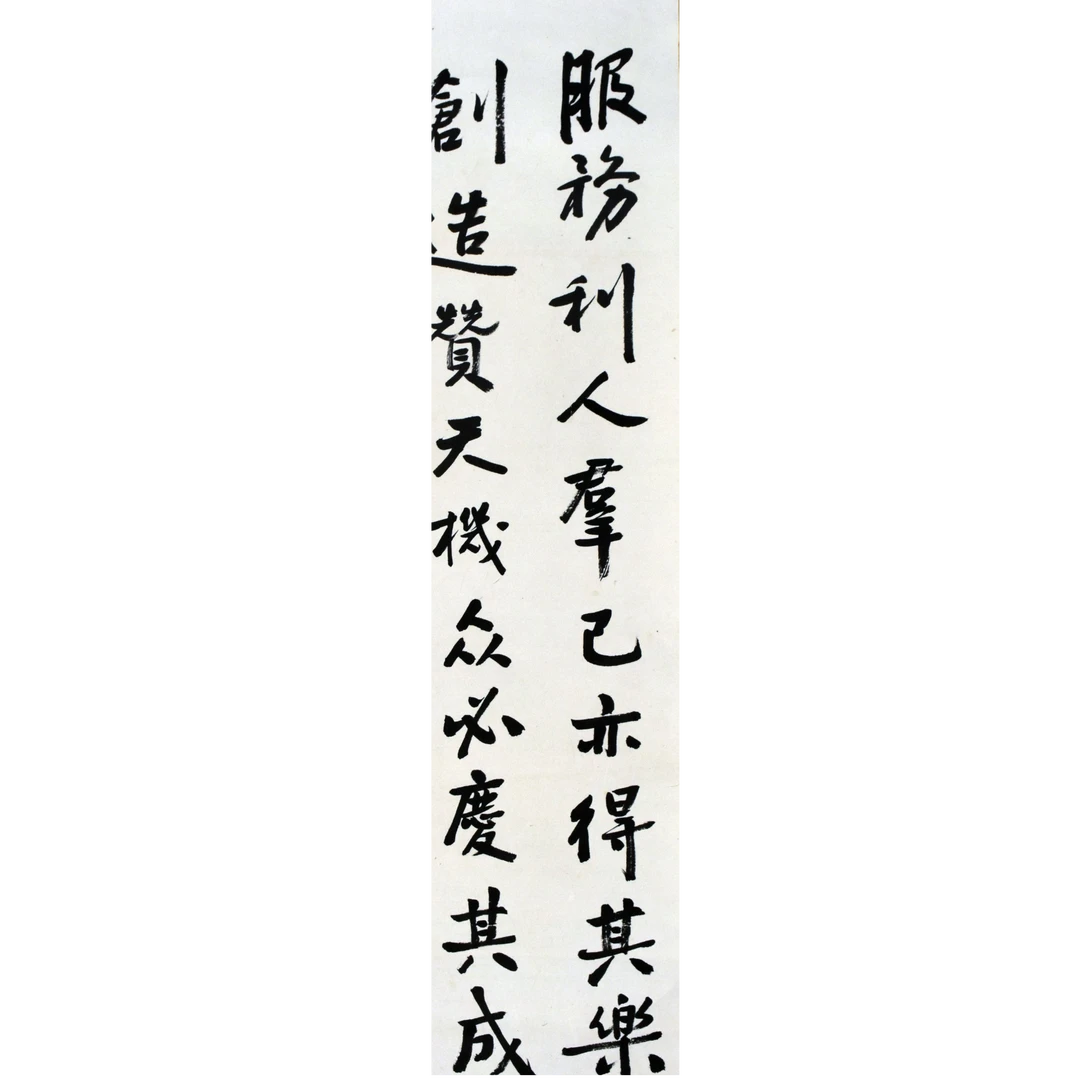 服務利人羣己亦得其樂
創造贊天機众必慶其成